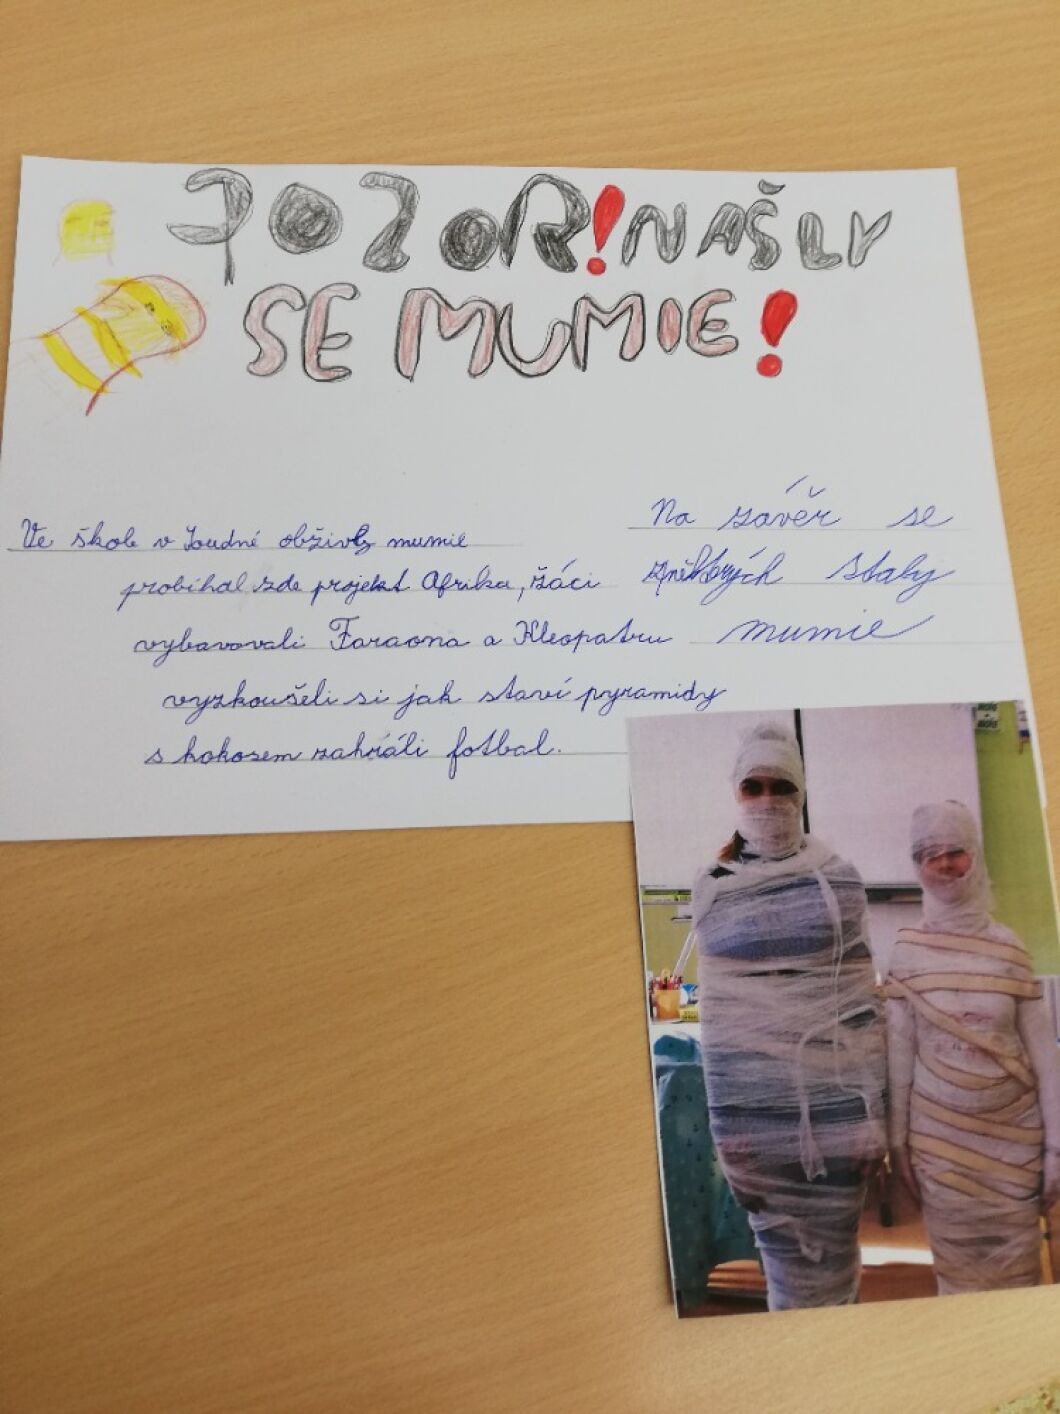 POZOR! NAŠLY
SE MUMIE!
Ve škole v Loudné obživly mumie
probíhal zde projekt Afrika, žáci
vybavovali Faraona a Kleopatru
vyzkoušeli si jak staví pyramidy
s kokosem zahráli fotbal.
Na závěr se
z některých staly
mumie